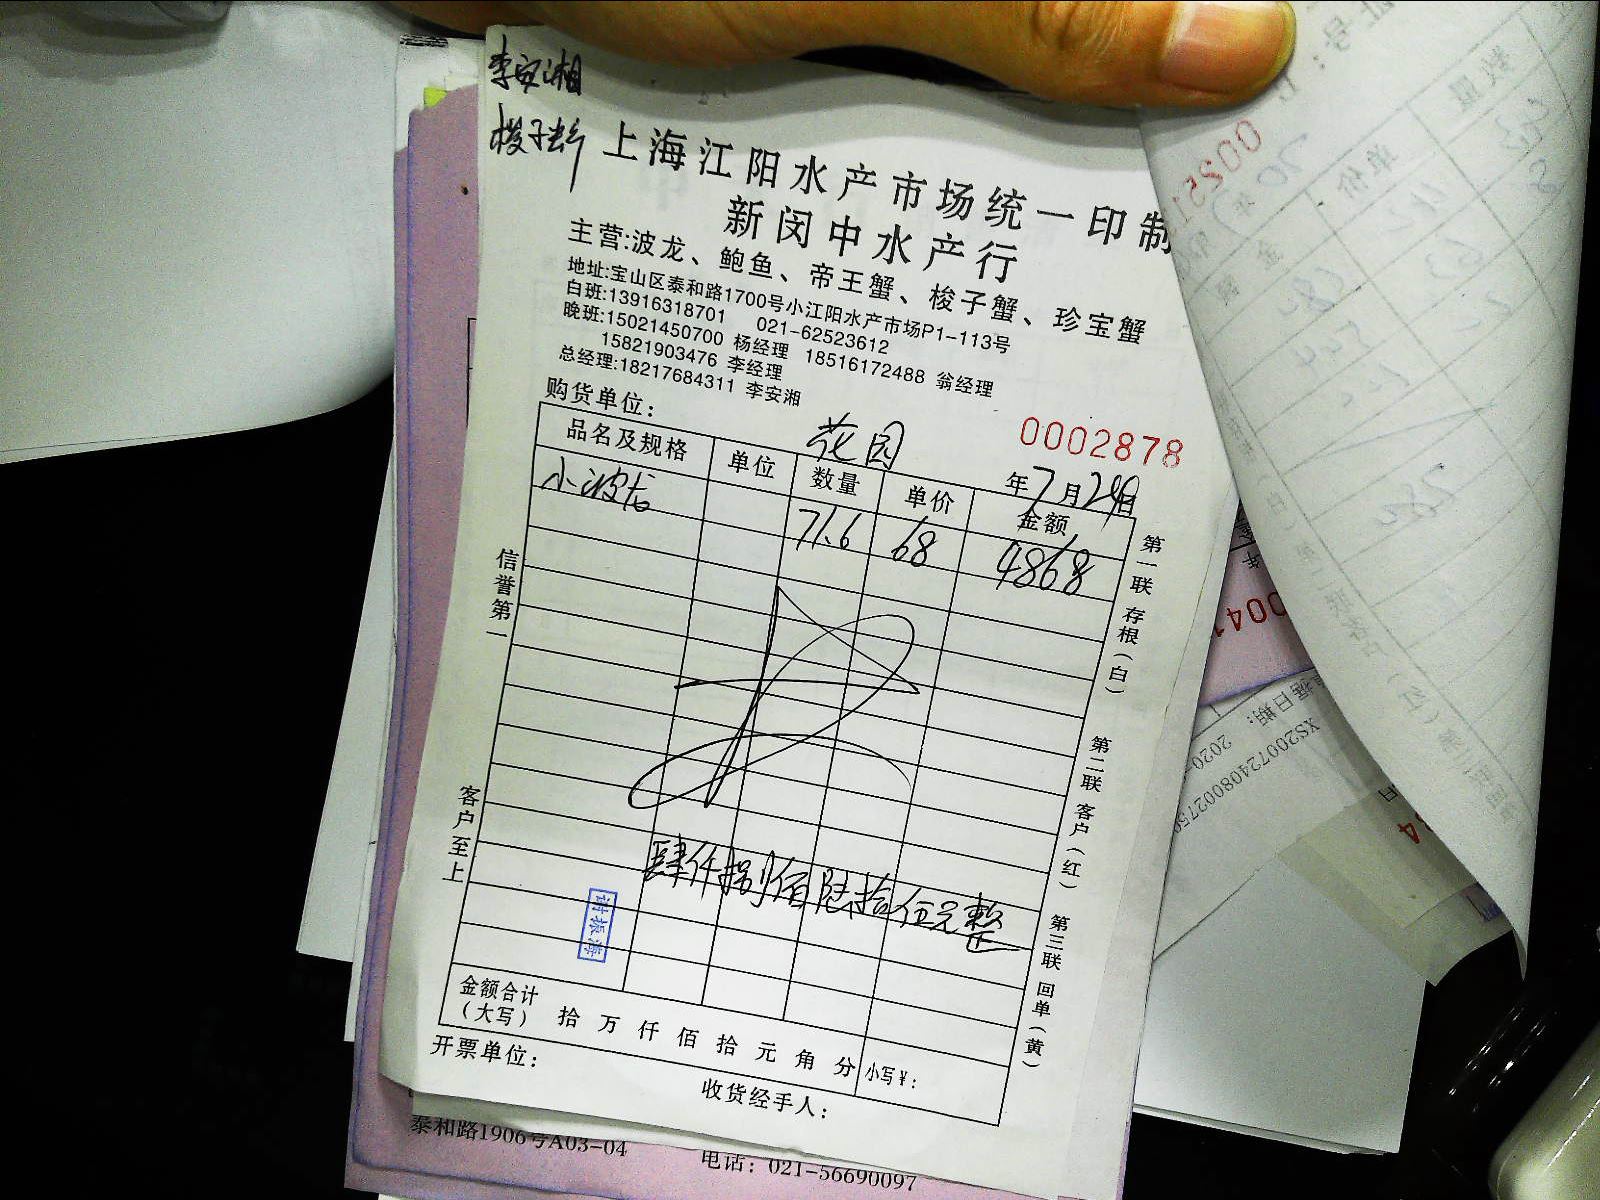 李安湘
梭子蟹
上海江阳水产市场统一印制
新闵中水产行
主营:波龙、鲍鱼、帝王蟹、梭子蟹、珍宝蟹
地址:宝山区泰和路1700号小江阳水产市场P1-113号
白班:13916318701 021-62523612
晚班:15021450700 杨经理 18516172488 翁经理
15821903476 李经理
总经理:18217684311 李安湘
购货单位: 花园
0002878
年7月24日
品名及规格 单位 数量 单价 金额
小波龙 71.6 68 4868
信誉第一
客户至上
第一联 存根(白)
第二联 客户(红)
第三联 回单(黄)
肆仟捌佰陆拾伍元整
金额合计
(大写) 拾 万 仟 佰 拾 元 角 分 小写¥:
开票单位:
收货经手人:
泰和路1906号A03-04
电话: 021-56690097
XS20072408002759